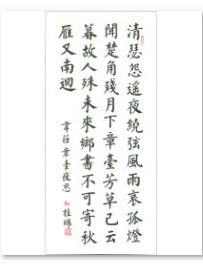 清瑟怨遙夜繞弦風雨哀孤燈
聞楚角殘月下章臺芳草已云
暮故人殊未來鄉書不可寄秋
雁又南迴
韋莊章臺夜思